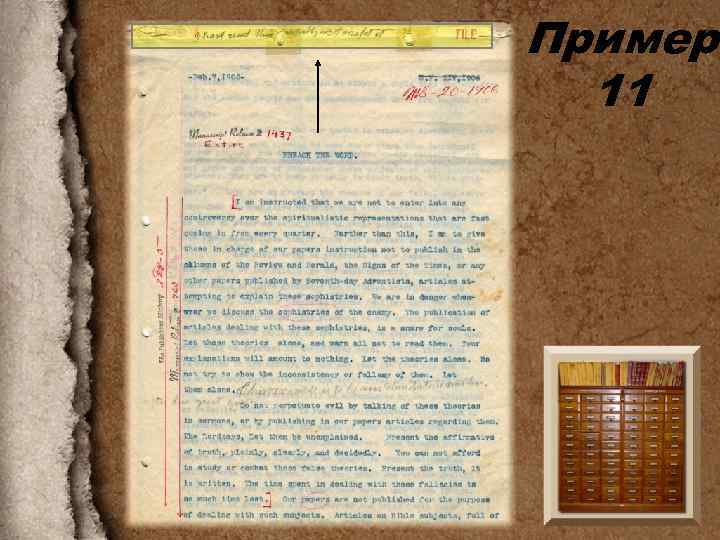 Пример
11
I have read this
FILE
-Feb.7,1906-
MS-20-1906
Manuscript Release # 1437
Entire
PREACH THE WORD.
I am instructed that we are not to enter into any
controversy over the spiritualistic representations that are fast
coming in from every quarter. Farther than this, I am to give
those in charge of our papers instruction not to publish in the
columns of the Review and Herald, the Signs of the Times, or any
other papers published by Seventh-day Adventists, articles at-
tempting to explain these sophistries. We are in danger when-
ever we discuss the sophistries of the enemy. The publication of
articles dealing with these sophistries, is a snare for souls.
Let these theories alone, and warn all not to read them. Your
explanations will amount to nothing. Let the theories alone. Do
not try to show the inconsistency or fallacy of them. Let
them alone.
Do not perpetuate evil by talking of these theories
in sermons, or by publishing in our papers articles regarding them.
The Lord says, Let them be unexplained. Present the affirmative
of truth, plainly, clearly, and decidedly. You can not afford
to study or combat these false theories. Present the truth, It
is written. The time spent in dealing with these fallacies is
so much time lost. Our papers are not published for the purpose
of dealing with such subjects. Articles on Bible subjects, full of